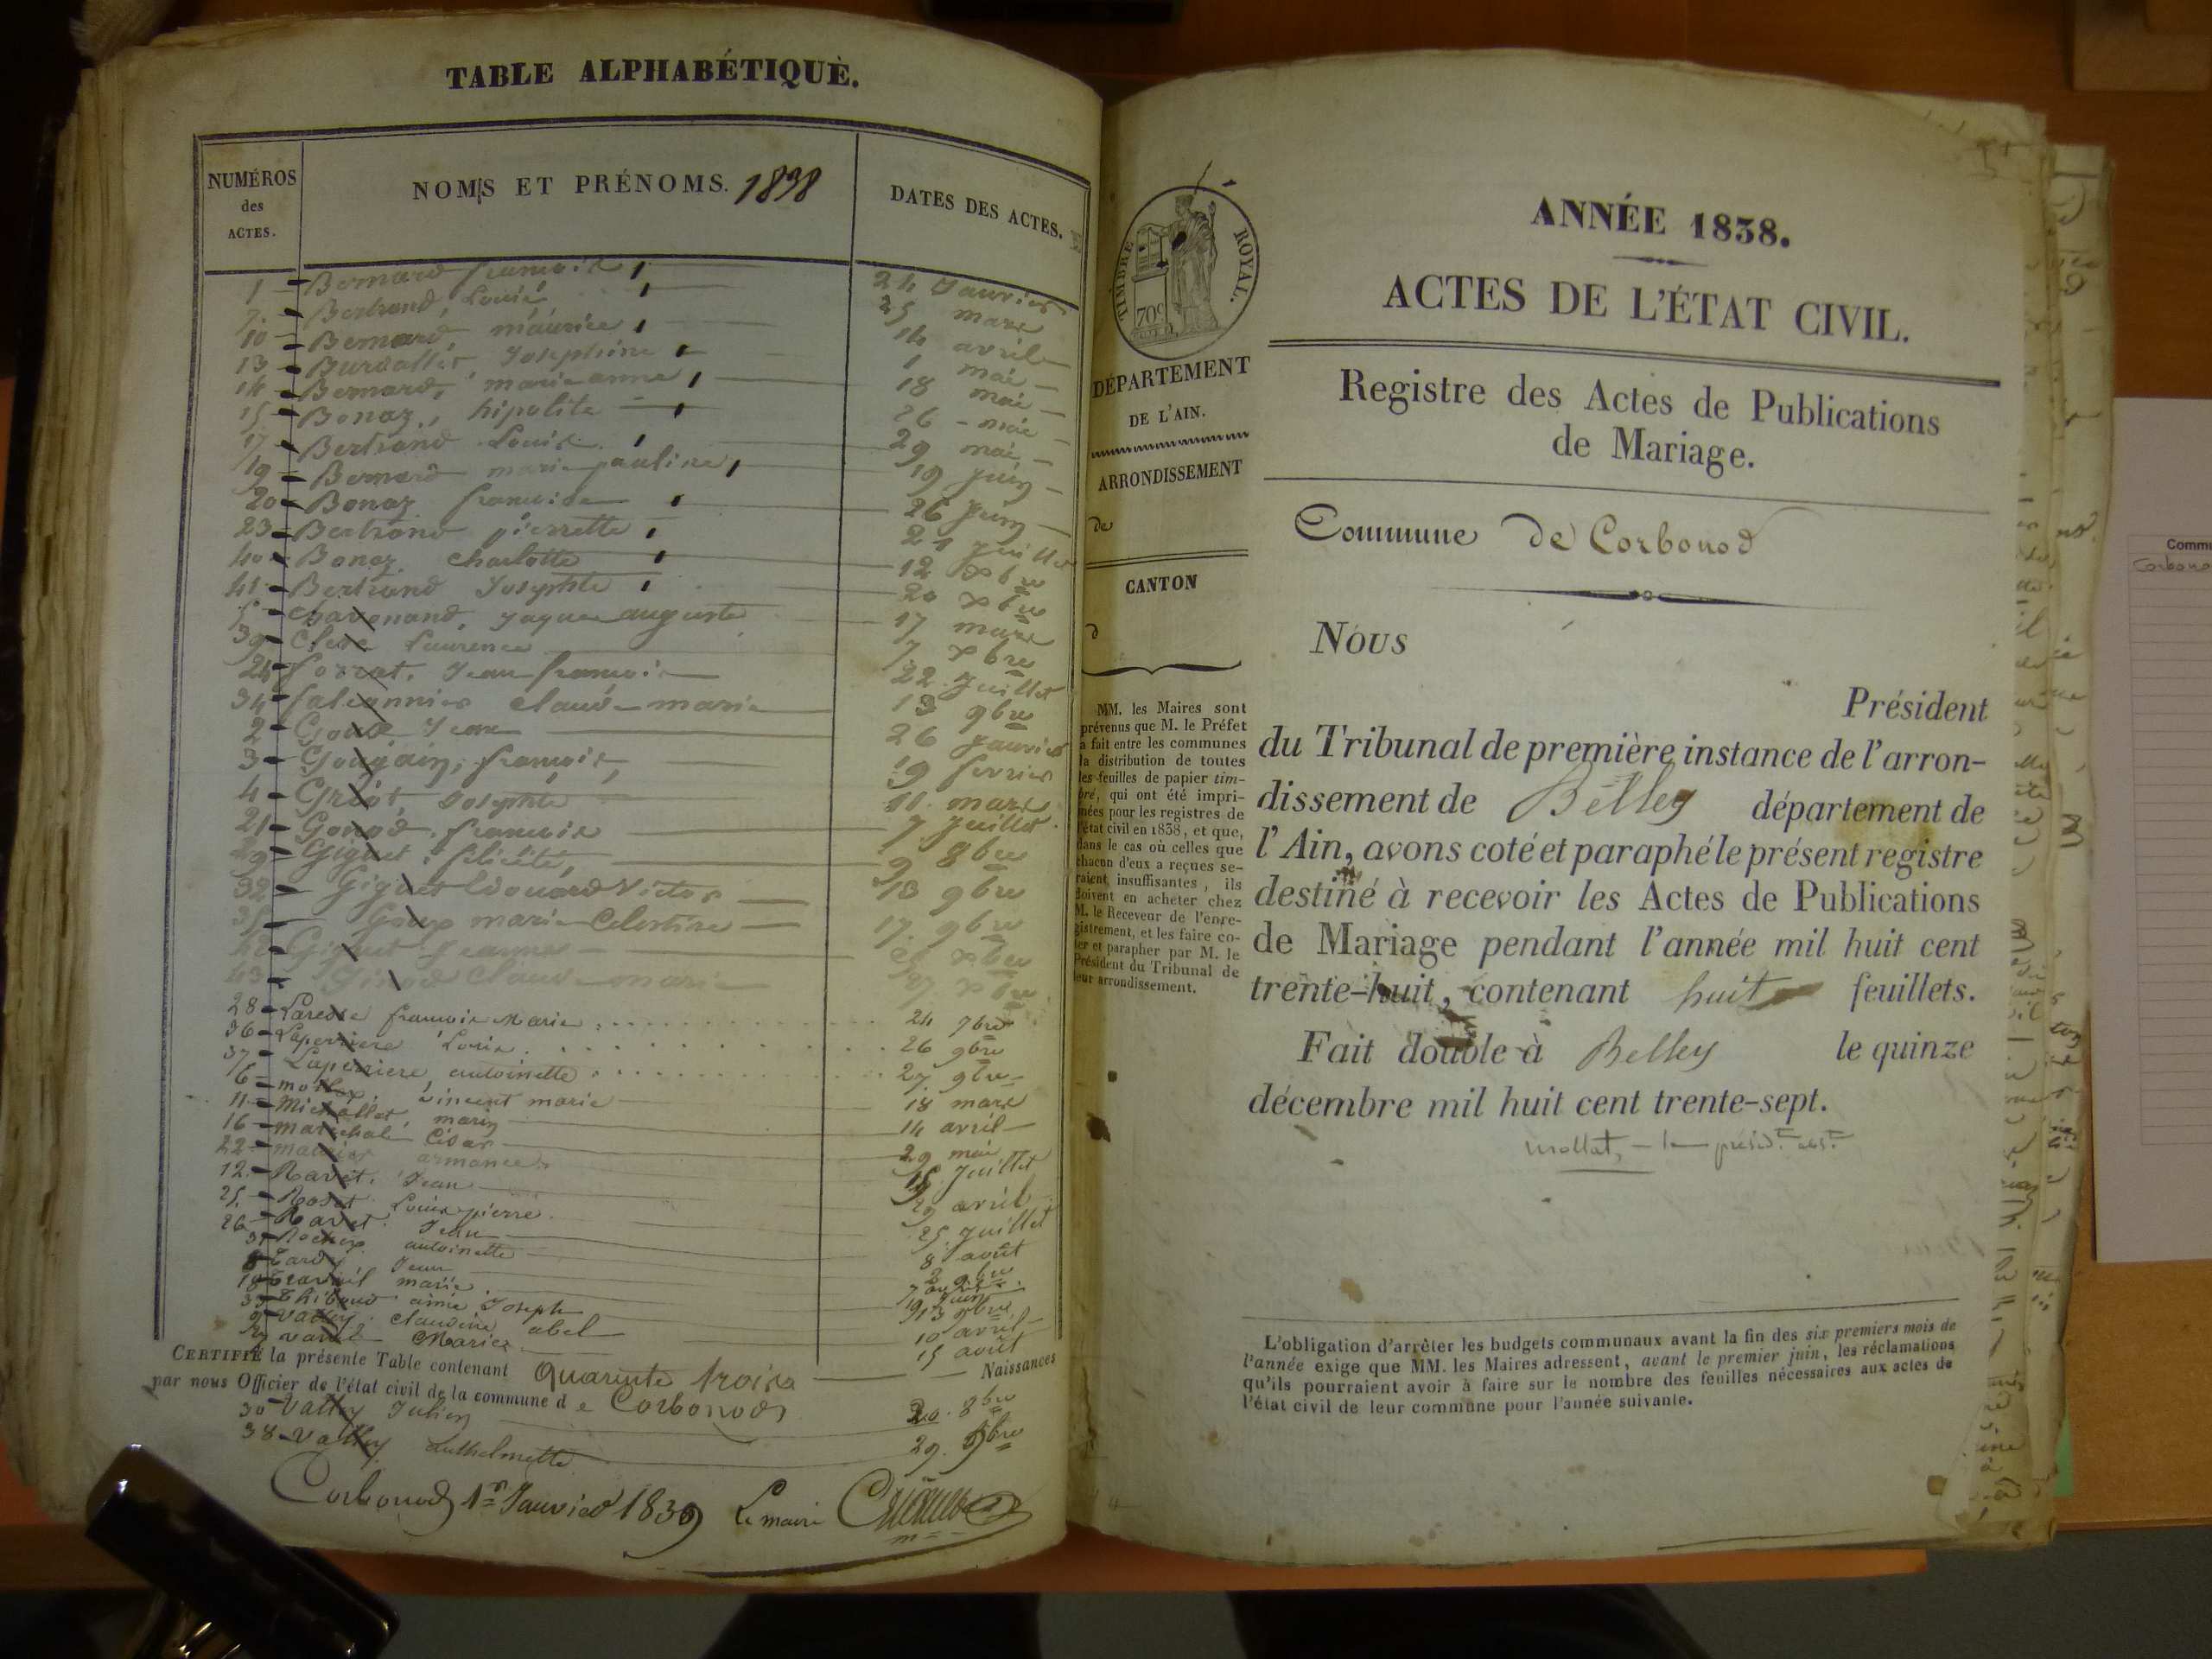 TABLE ALPHABÉTIQUE.
NUMÉROS des ACTES.
NOMS ET PRÉNOMS. 1838
DATES DES ACTES.
1 Bernard françois 24 Janvier
7 Bertrand, Louis 25 mars
10 Bernard, maurice 14 avril
13 Burdallet, Josephine 1 mai
14 Bernard, marie anne 18 mai
15 Bonaz, hipolite 26 mai
17 Bertrand Louis 29 mai
19 Bernard marie pauline 19 juin
20 Bonaz françoise 26 juin
23 Bertrand pierrette 21 Juillet
40 Bonaz Charlotte 12 xbre
41 Bertrand Josephte 20 xbre
Chavonand, Jaque auguste 17 mars
39 Clerc Laurence 7 xbre
24 forrat, Jean françois 22 Juillet
34 falconnier Claude marie 13 9bre
2 Goux Jean 26 Janvier
3 Goujain, françois 19 fevrier
4 Griot, Josephte 11 mars
21 Gonod françois 7 Juillet
29 Giguet félicité, 9 8bre
32 Giguet Edouard Victor 13 9bre
35 Goux marie Celestine 17 9bre
42 Giguet Jeanne xbre
43 Claude marie 27 xbre
28 Laresse françois Marie 24 7bre
36 Laperriere Louis 26 9bre
37 Laperriere, antoinette 27 9bre
6 mollex, vincent marie 18 mars
11 Michallet, marin 14 avril
16 marechal César 29 mai
22 armance 15 Juillet
12 Ravet, Jean 29 avril
25 Rosset Louis pierre 25 Juillet
26 Ravet Jean 8 août
31 Rochex antoinette 2 9bre
8 Tardy Jean 7 avril
18 Travail marie 19 juin
33 Thiboud aimé Joseph 13 9bre
9 Valley, claudine abel 10 avril
27 Marie 15 août
CERTIFIÉ la présente Table contenant Quarente trois Naissances
par nous Officier de l'état civil de la commune de Corbonod
30 Valley Julien 20 8bre
38 Valley anthelmette 29 9bre
Corbonod 1er Janvier 1839 Le maire
TIMBRE ROYAL.
70c
DÉPARTEMENT
DE L'AIN.
ARRONDISSEMENT
de
CANTON
d
MM. les Maires sont
prévenus que M. le Préfet
a fait entre les communes
la distribution de toutes
les feuilles de papier tim-
bré, qui ont été impri-
mées pour les registres de
l'état civil en 1838, et que,
dans le cas où celles que
chacun d'eux a reçues se-
raient insuffisantes, ils
doivent en acheter chez
M. le Receveur de l'enre-
gistrement, et les faire co-
ter et parapher par M. le
Président du Tribunal de
leur arrondissement.
ANNÉE 1838.
ACTES DE L'ÉTAT CIVIL.
Registre des Actes de Publications
de Mariage.
Commune de Corbonod
Nous
Président
du Tribunal de première instance de l'arron-
dissement de Belley département de
l'Ain, avons coté et paraphé le présent registre
destiné à recevoir les Actes de Publications
de Mariage pendant l'année mil huit cent
trente-huit, contenant huit feuillets.
Fait double à Belley le quinze
décembre mil huit cent trente-sept.
mollat, le présid.t abs.t
L'obligation d'arrêter les budgets communaux avant la fin des six premiers mois de
l'année exige que MM. les Maires adressent, avant le premier juin, les réclamations
qu'ils pourraient avoir à faire sur le nombre des feuilles nécessaires aux actes de
l'état civil de leur commune pour l'année suivante.
Commu
Corbono